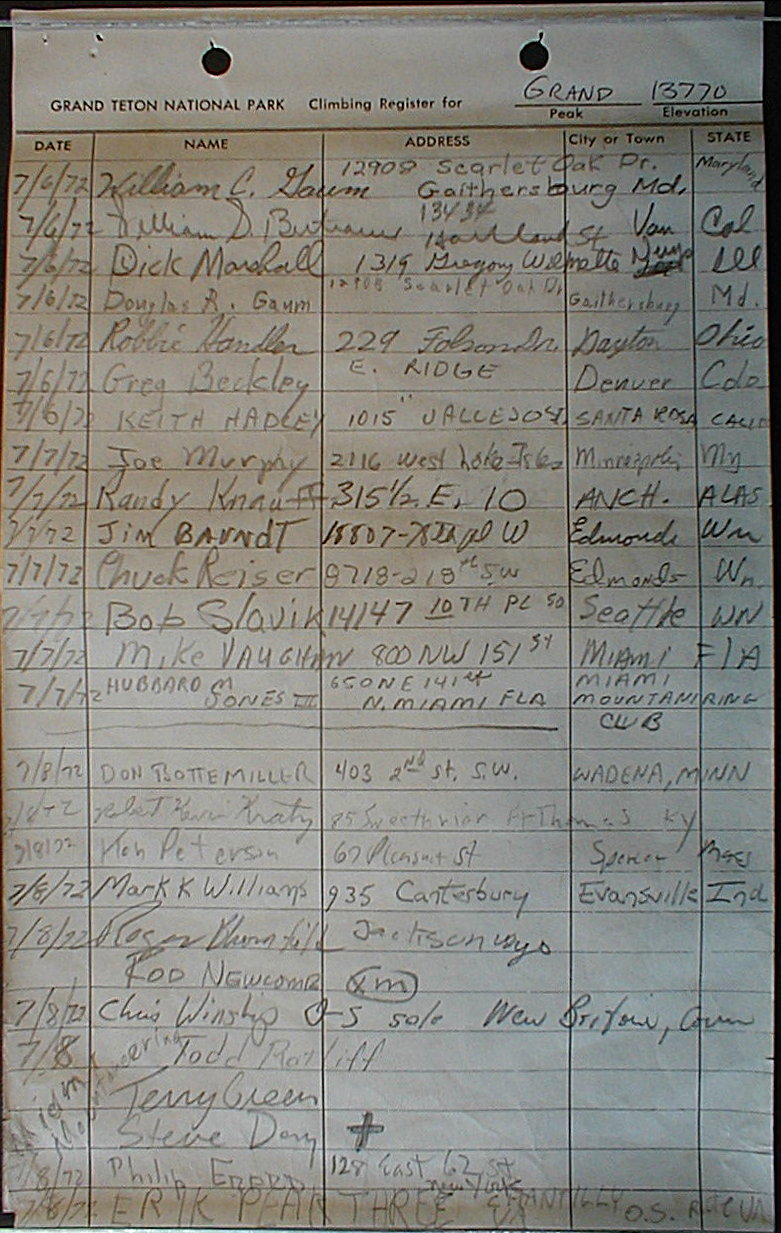 GRAND 13770
GRAND TETON NATIONAL PARK Climbing Register for Peak Elevation
DATE NAME ADDRESS City or Town STATE
7/6/72 William C. Gaum 12908 Scarlet Oak Dr. Gaithersburg Md. Maryland
7/6/72 William D. 13434 St Van Cal
7/6/72 Dick Marshall 1319 Gregory Wilmette Ill
7/6/72 Douglas R. Gaum 12908 Scarlet Oak Dr Gaithersburg Md.
7/6/72 Robbie Handler 229 Folsom Dr. Dayton Ohio
7/6/72 Greg Beckley E. RIDGE Denver Colo
7/6/72 KEITH HADLEY 1015 VALLEJO ST. SANTA ROSA CALIF
7/7/72 Joe Murphy 2116 West Lake Isles Minneapolis Mn
7/7/72 Randy Knauff 315 1/2 E. 10 ANCH. ALAS
7/7/72 JIM BARNDT 18807-78th pl W Edmonds Wn
7/7/72 Chuck Reiser 8718-218th SW Edmonds Wn.
7/7/72 Bob Slavik 14147 10TH PL SO Seattle WN
7/7/72 Mike VAUGHAN 800 NW 151 ST MIAMI FLA
7/7/72 HUBBARD M JONES III 650 NE 141 st N. MIAMI FLA MIAMI MOUNTAINRING
CLUB
7/8/72 DON BOTTEMILLER 403 2ND St. S.W. WADENA, MINN
Kevin Kratz 85 Sweetbriar Ft Thomas Ky
7/8/72 Ken Peterson 67 Pleasant St Spencer Mass
7/8/72 Mark K Williams 935 Canterbury Evansville Ind
7/8/72 Roger Jackson Wyo
ROD NEWCOMB XM
7/8/72 Chris Winship solo New Britain, Conn
7/8 Todd Ratliff
Miami Mountaineering
Terry Green
Steve Dory +
7/8/72 Philip 128 East 62 St
New York
7/8/72 ERIK PEAK THREE CHANTILLY VA O.S.